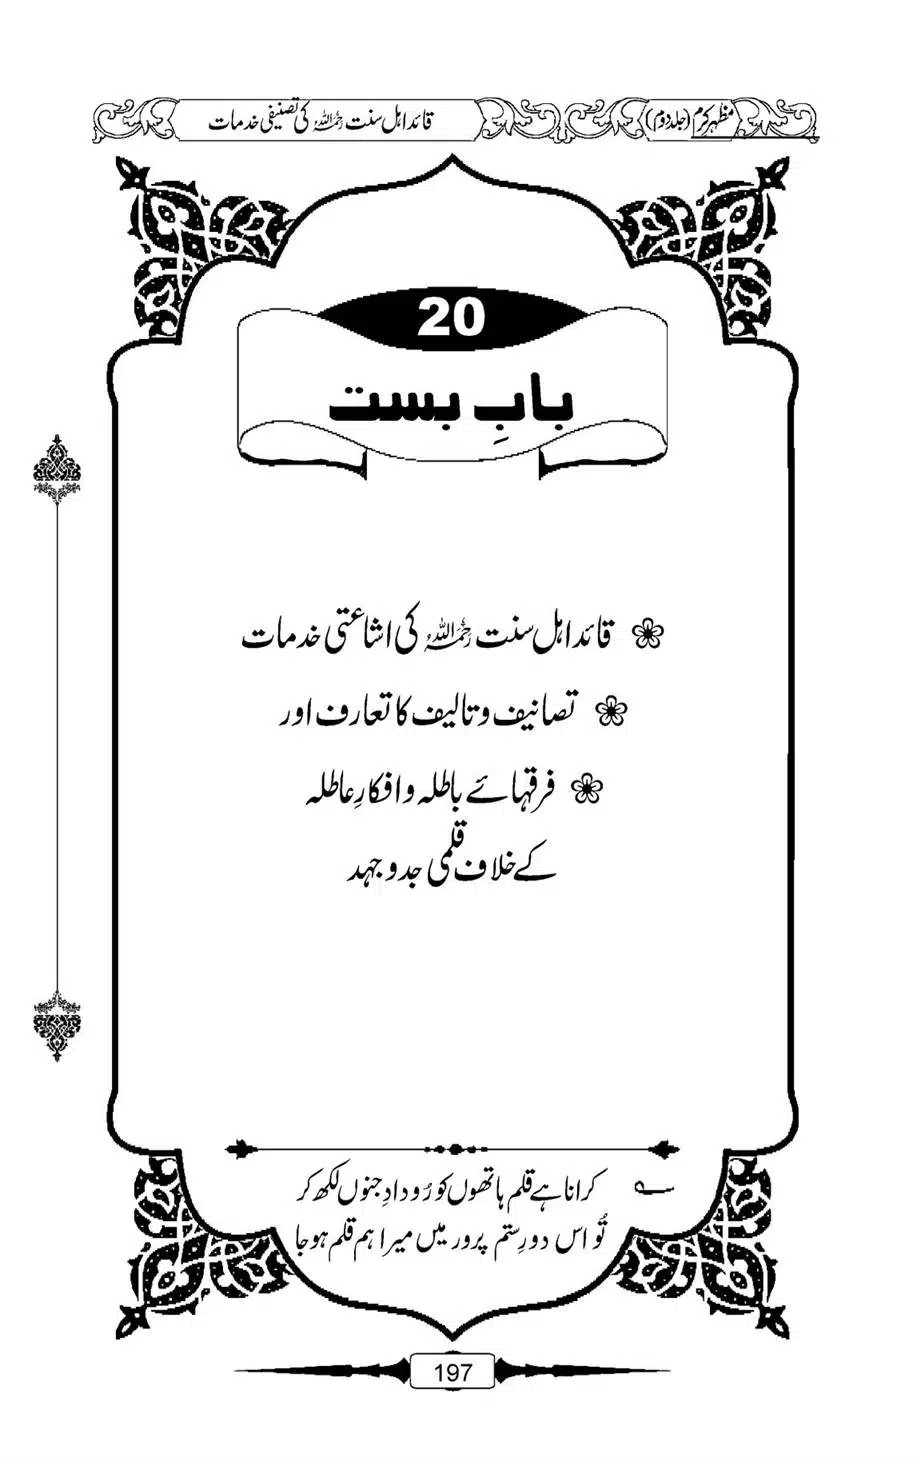 مظہر کرم (جلد دوم)
قائد اہل سنت رحمۃ اللہ علیہ کی تصنیفی خدمات
20
بابِ بست
قائد اہل سنت رحمۃ اللہ علیہ کی اشاعتی خدمات
تصانیف و تالیف کا تعارف اور
فرقہائے باطلہ و افکارِ عاطلہ
کے خلاف قلمی جدوجہد
کرانا ہے قلم ہاتھوں کو رُودادِ جنوں لکھ کر
تُو اس دورِ ستم پرور میں میرا ہم قلم ہو جا
197